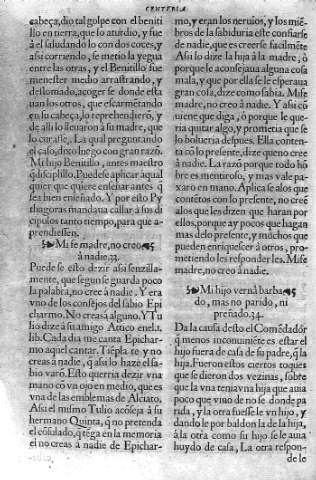 CENTVRIA
cabeça, dio tal golpe con el beniti
llo en tierra, que lo aturdio, y fue
à el saludando lo con dos coces, y
assi corriendo, se metio la yegua
entre las otras, y el Benitillo fue
menester medio arrastrando, y
deslomado, acoger se donde esta
uan los otros, que escarmẽtando
en su cabeço, lo reprehendierõ, y
de alli lo lleuaron a su madre, que
lo curasse. La qual preguntando
el caso, dixo luego con gran razõ.
Mi hijo Benitillo, antes maestro
q̃ discipl̃illo. Puedese aplicar à qual
quier que quiere enseñar antes q̃
sea bien enseñado. Y por esto Py
thagoras mandaua callar à sus di
cipulos tanto tiempo, para que a-
prendiessen.
Mase madre, no creo
à nadie. 33.
Puede se esto dezir assi senzilla-
mente, que segun se guarda poco
la palabra, no cree à nadie. Y era
vno de los consejos del sabio Epi
charmo. No creas à alguno. Y Tu
lio dize à su amigo Attico enel. 1.
lib. Cada dia me canta Epichar-
mo aquel cantar. Tiẽpla te y no
creas à nadie, q̃ assi lo haze el sa-
bio varõ. Esto querria dezir vna
mano cõ vn ojo en medio, que es
vna de las emblemas de Alciato.
Assi el mismo Tulio acõseja à su
hermano Quinta, q̃ no pretenda
el cõsulado, q̃ tẽga en la memoria
el no creas à nadie de Epichar-
mo, y eran los neruios, y los miẽ-
bros de la sabiduria este confiarse
de nadie, que es creer se facilmẽte
Assi lo dize la hija à la madre, ò
porque le aconsejaua alguna cosa
mala, y que por ella se le esperaua
gran cosa, dize como sabia. Mise
madre, no creo à nadie. Y assi cõ
uiene que diga, ò porque le que-
ria quitar algo, y prometia que se
lo bolueria despues. Ella conten-
ta cõ lo presente, dize que no cree
à nadie. La razõ porque todo hõ
bre es mentiroso, y mas vale pa-
xaro en mano. Aplica se alos que
contẽtos con lo presente, no creẽ
alos que les dizen que haran por
ellos, porque ay pocos que hagan
mas delo presente, y muchos que
pueden enriquecer à otros, pro-
metiendo les responder les. Mise
madre, no creo à nadie.
Mi hijo verná barba
do, mas no parido, ni
preñado. 34.
Da la causa desto el Comẽdador
q̃ menos inconuiniẽte es estar el
hijo fuera de casa de su padre, q̃ la
hija. Fueron estos ciertos toques
que se dieron dos vezinas, sobre
que la vna tenia vna hija que auia
poco que vino de no se donde pa
rida, y la otra fuesse le vn hijo, y
dando le por baldon la de la hija,
à la otra como su hijo se le aua
huydo de casa, La otra respon-
de le